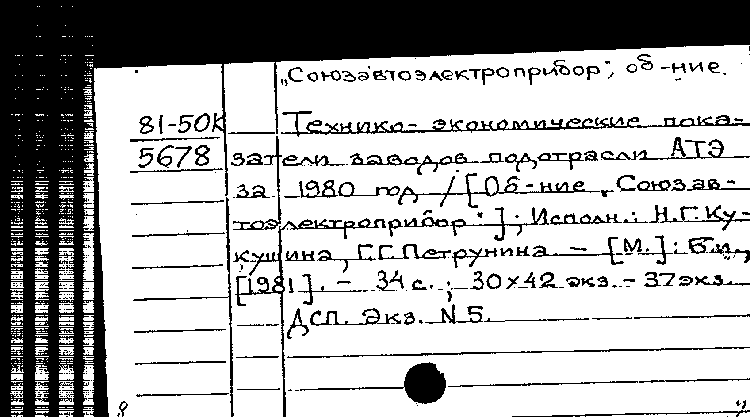 „Союзавтоэлектроприбор", об-ние.
81-50К Технико-экономические пока-
5678 затели заводов подотрасли АТЭ
за 1980 год / [Об-ние „Союзав-
тоэлектроприбор"]; Исполн.: Н.Г. Ку-
кушина, Г.Г. Петрунина. - [М.]: Б.и.,
[1981]. - 34 с.; 30×42 экз. - 37 экз.
ДСП. Экз. N 5.